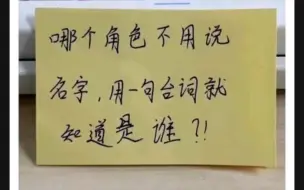 哪个角色不用说
名字,用一句台词就
知道是谁?!